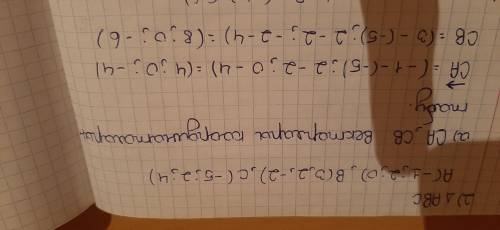 2) △ABC
A(-1; 2; 0), B(3; 2; -2), C(-5; 2; 4)
a) CA, CB векторларын координаталарын
табу.
CA = (-1-(-5); 2-2; 0-4) = (4; 0; -4)
CB = (3-(-5); 2-2; -2-4) = (8; 0; -6)